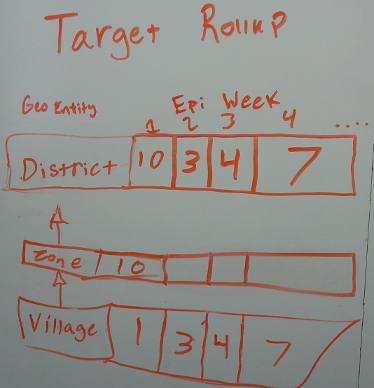 Target Rollup
Geo Entity Epi Week
1 2 3 4 ....
District 10 3 4 7
Zone 10
Village 1 3 4 7